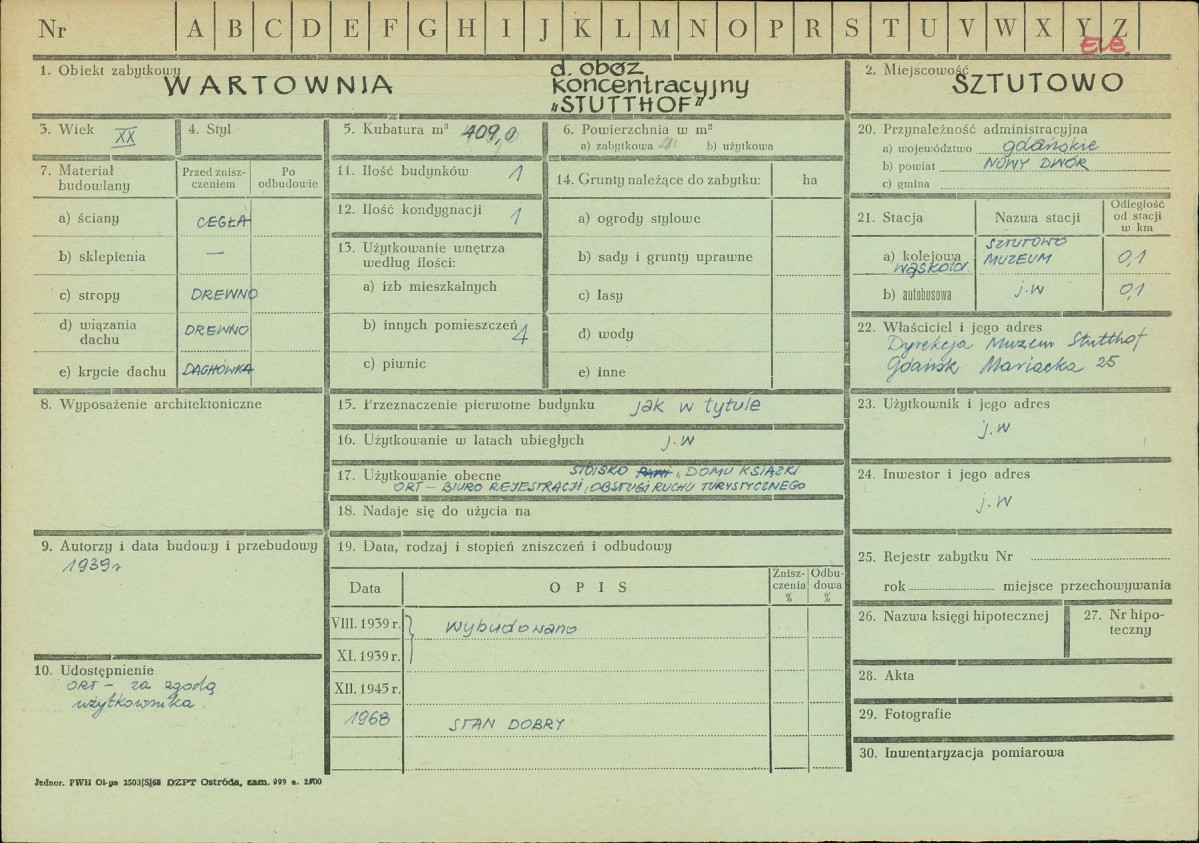 Nr A B C D E F G H I J K L M N O P R S T U V W X Y Z
1. Obiekt zabytkowy WARTOWNIA
d. obóz
koncentracyjny
"STUTTHOF"
2. Miejscowość SZTUTOWO
3. Wiek XX
4. Styl
5. Kubatura m³ 409,0
6. Powierzchnia w m²
a) zabytkowa b) użytkowa
7. Materiał
budowlany
Przed znisz-
czeniem
Po
odbudowie
a) ściany CEGŁA
b) sklepienia —
c) stropy DREWNO
d) wiązania
dachu DREWNO
e) krycie dachu DACHÓWKA
8. Wyposażenie architektoniczne
9. Autorzy i data budowy i przebudowy
1939 r
10. Udostępnienie
ORT – za zgodą
użytkownika
11. Ilość budynków 1
12. Ilość kondygnacji 1
13. Użytkowanie wnętrza
według ilości:
a) izb mieszkalnych
b) innych pomieszczeń 4
c) piwnic
14. Grunty należące do zabytku: ha
a) ogrody stylowe
b) sady i grunty uprawne
c) lasy
d) wody
e) inne
15. Przeznaczenie pierwotne budynku jak w tytule
16. Użytkowanie w latach ubiegłych j.w
17. Użytkowanie obecne STOISKO „DOMU KSIĄŻKI
ORT – BIURO REJESTRACJI, OBSŁUGI RUCHU TURYSTYCZNEGO
18. Nadaje się do użycia na
19. Data, rodzaj i stopień zniszczeń i odbudowy
Data OPIS Znisz-
czenia
% Odbu-
dowa
%
VIII. 1939 r. wybudowano
XI. 1939 r.
XII. 1945 r.
1968 STAN DOBRY
20. Przynależność administracyjna
a) województwo gdańskie
b) powiat NOWY DWÓR
c) gmina
21. Stacja Nazwa stacji Odległość
od stacji
w km
a) kolejowa
wąskotor. SZTUTOWO
MUZEUM 0,1
b) autobusowa j.w 0,1
22. Właściciel i jego adres
Dyrekcja Muzeum Stutthof
Gdańsk Mariacka 25
23. Użytkownik i jego adres
j.w
24. Inwestor i jego adres
j.w
25. Rejestr zabytku Nr
rok miejsce przechowywania
26. Nazwa księgi hipotecznej
27. Nr hipo-
teczny
28. Akta
29. Fotografie
30. Inwentaryzacja pomiarowa
DZPT Ostróda, zam. 999 n. 2500